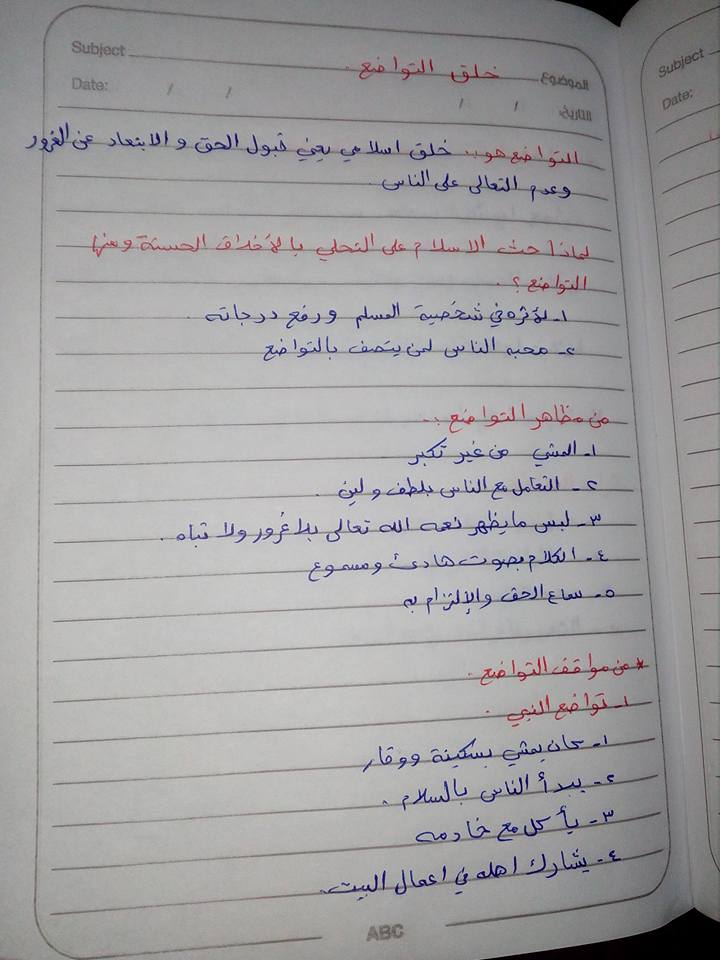 Subject
خلق التواضع.
الموضوع
Date: / /
التاريخ: / /
التواضع هو:. خلق اسلامي يعني قبول الحق و الابتعاد عن الغرور
وعدم التعالى على الناس.
لماذا حث الاسلام على التحلي بالأخلاق الحسنة ومنها
التواضع؟.
١- لأثره في شخصية المسلم ورفع درجاته.
٢- محبه الناس لمن يتصف بالتواضع
من مظاهر التواضع:.
١- المشي من غير تكبر
٢- التعامل مع الناس بلطف ولين.
٣- لبس ما يظهر نعمه الله تعالى بلا غرور ولا تباه.
٤- الكلام بصوت هادئ ومسموع
٥- سماع الحق والإلتزام به
* من مواقف التواضع.
١- تواضع النبي.
١- كان يمشي بسكينة ووقار
٢- يبدأ الناس بالسلام.
٣- يأكل مع خادمه
٤- يشارك اهله في اعمال البيت.
ABC
Subject
Date: